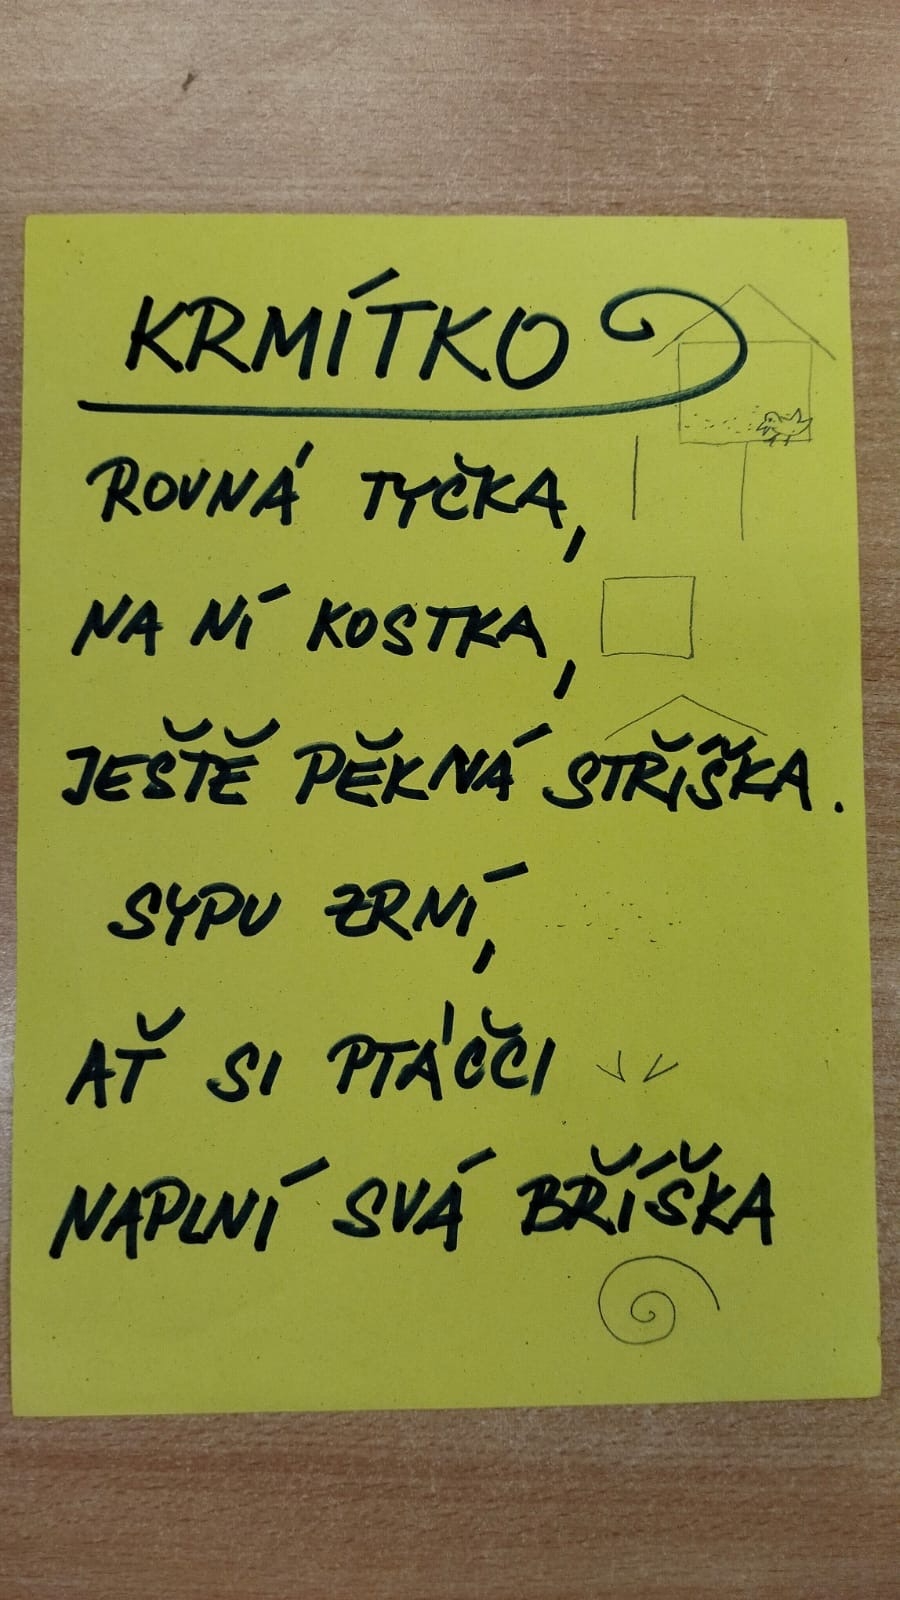 KRMÍTKO
ROVNÁ TYČKA,
NA NÍ KOSTKA,
JEŠTĚ PĚKNÁ STŘÍŠKA.
SYPU ZRNÍ,
AŤ SI PTÁČČI
NAPLNÍ SVÁ BŘÍŠKA